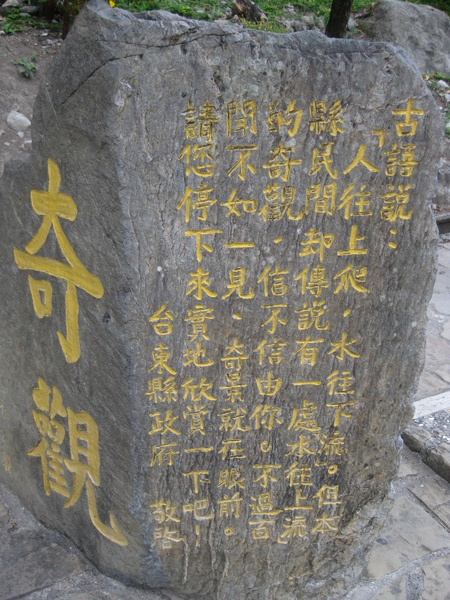 古語說：
「人往上爬，水往下流」。但本
縣民間却傳說有一處水往上流
的奇觀，信不信由你。不過百
聞不如一見、奇景就在眼前。
請您停下來實地欣賞一下吧！
台東縣政府 敬啓
奇觀